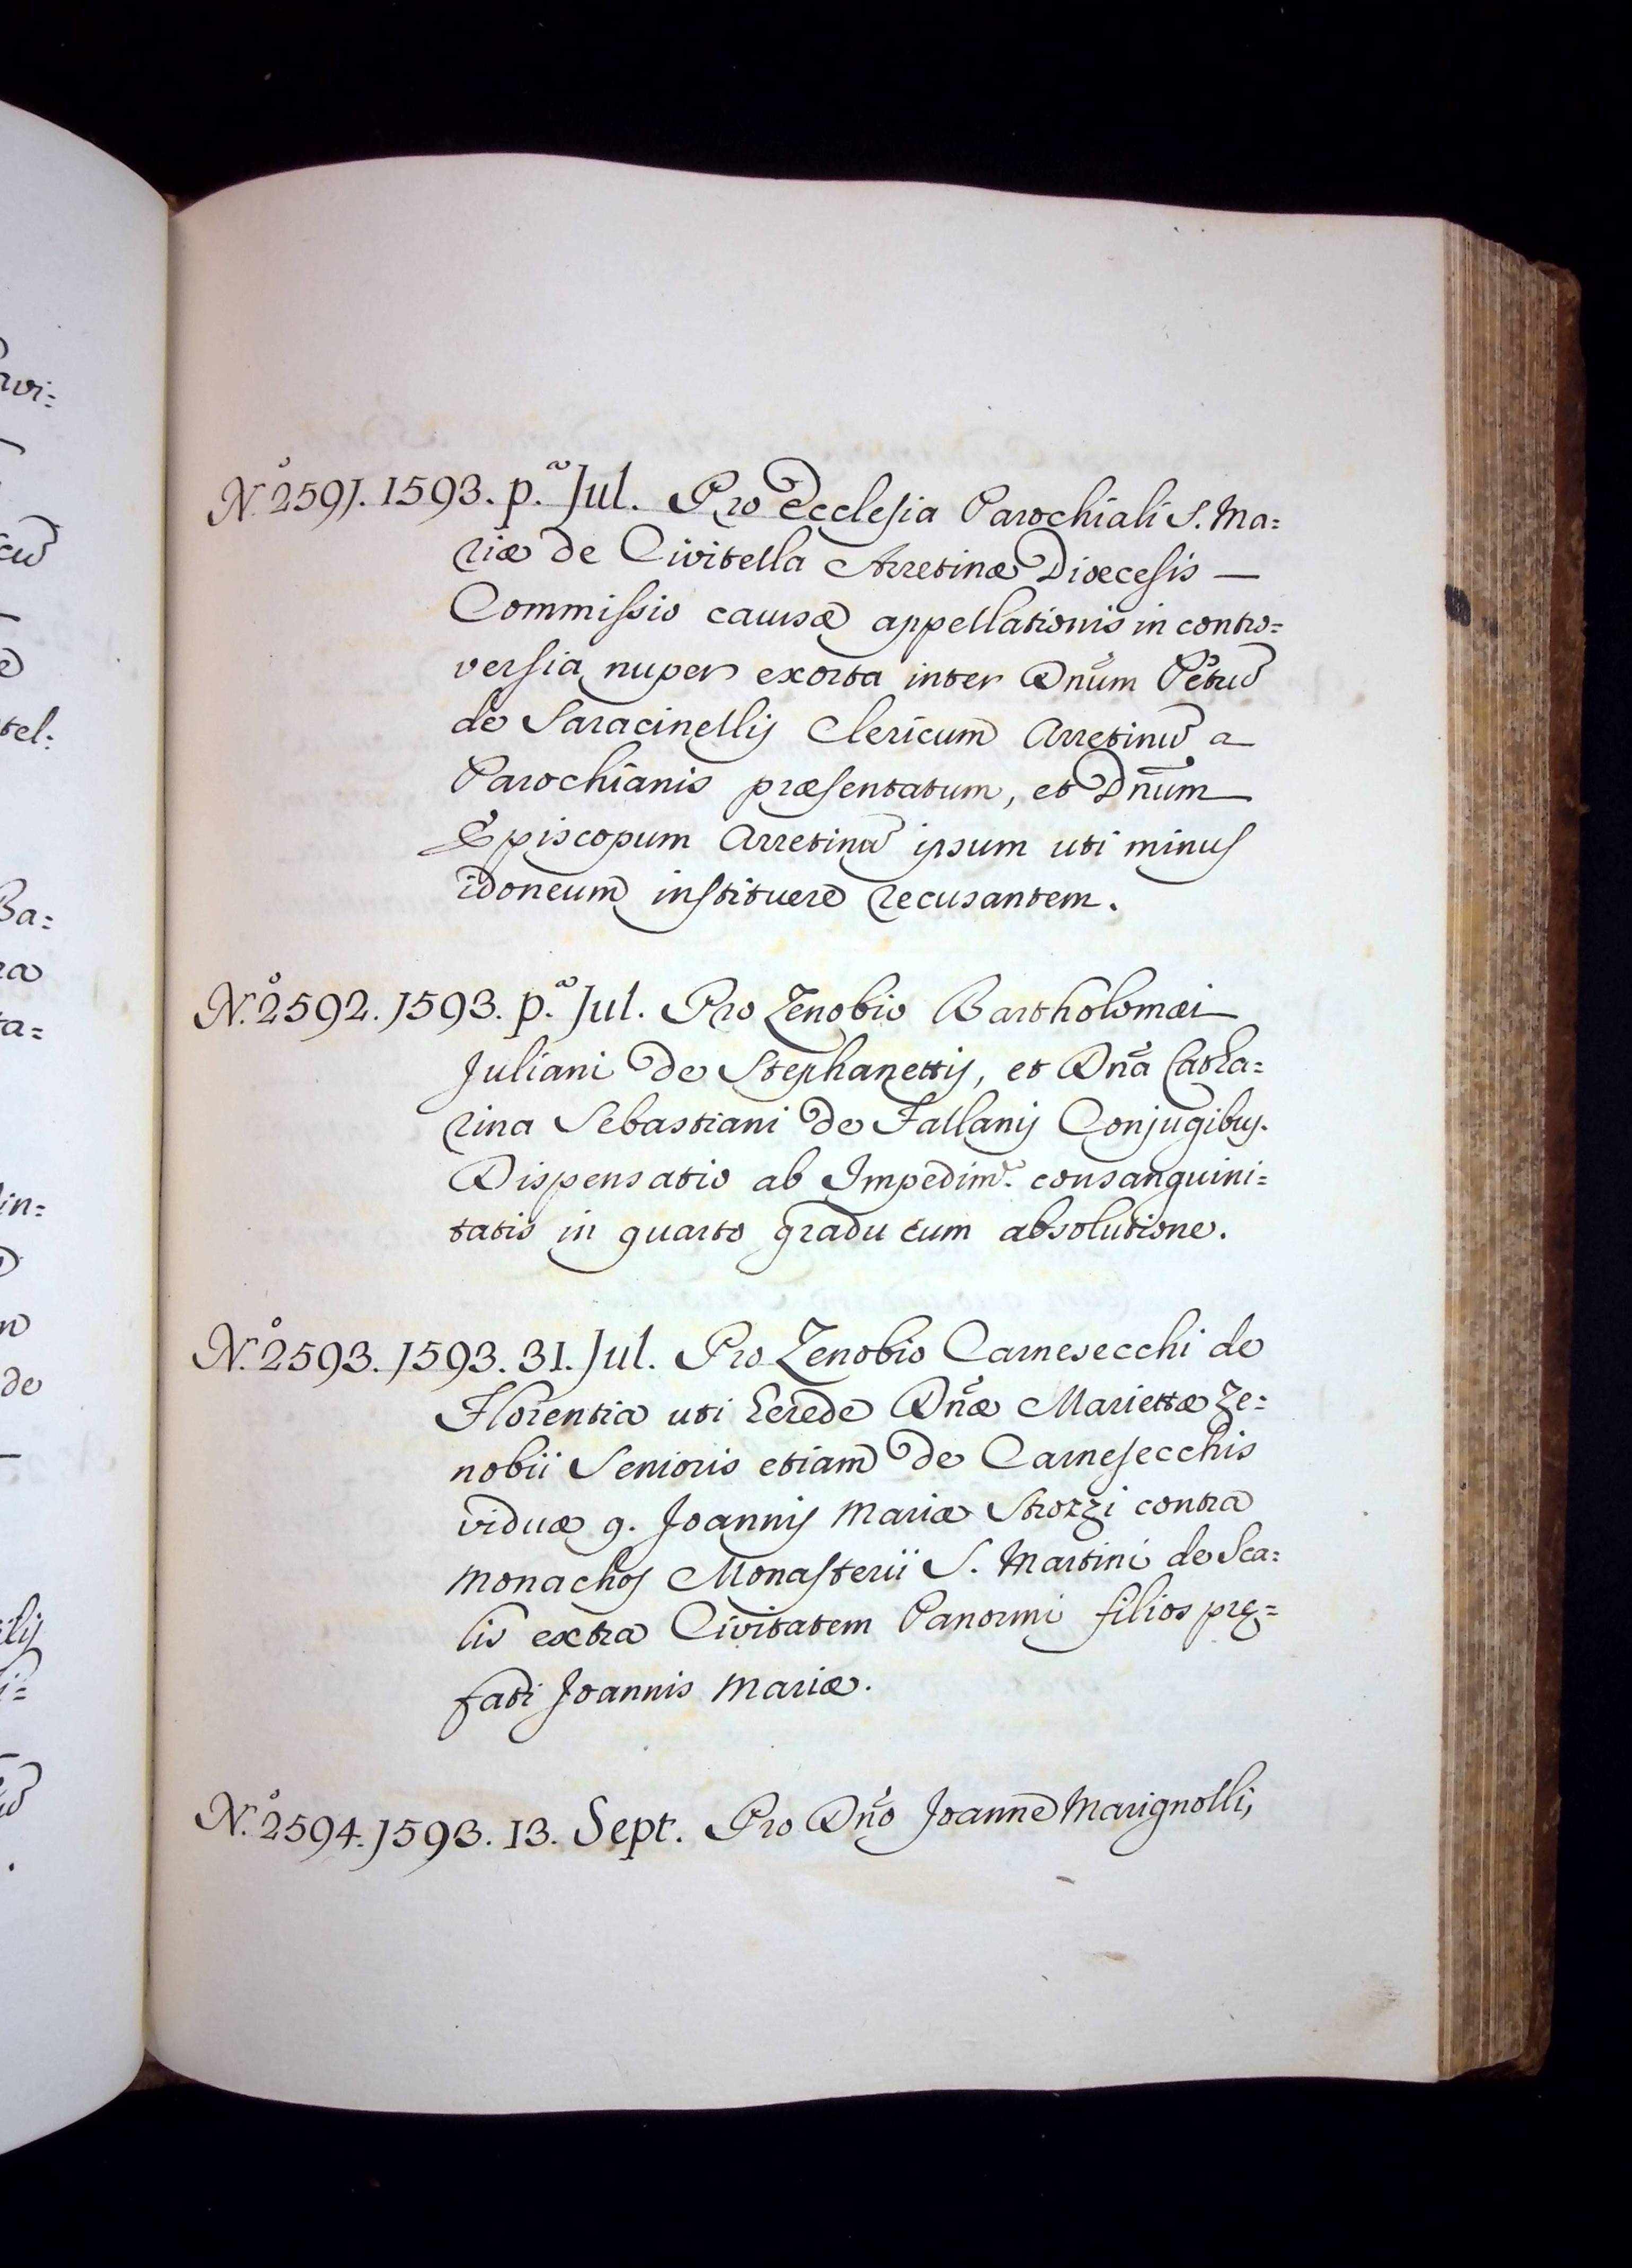 N.º 2591. 1593. p.ª Jul. Pro Ecclesia Parochiali S. Ma=
riæ de Civitella Arretinæ Dioecesis —
Commissio causæ appellationis in contro=
versia nuper exorta inter Dñum Petrũ
de Saracinellis Clericum Arretinũ a
Parochianis præsentatum, et Dñum
Episcopum Arretinũ ipsum uti minus
idoneum instituere recusantem.
N.º 2592. 1593. p.ª Jul. Pro Zenobio Bartholomæi
Juliani de Stephanettis, et Dña Catha=
rina Sebastiani de Fallanis Conjugibus.
Dispensatio ab Impedim.º consanguini=
tatis in quarto gradu cum absolutione.
N.º 2593. 1593. 31. Jul. Pro Zenobio Carnesecchi de
Florentia uti herede Dñæ Mariettæ Ze=
nobii Senioris etiam de Carnesecchis
viduæ q. Joannis Mariæ Strozzi contra
Monachos Monasterii S. Martini de Sca=
lis extra Civitatem Panormi filios prę=
fati Joannis Mariæ.
N.º 2594. 1593. 13. Sept. Pro Dño Joanne Marignolli,